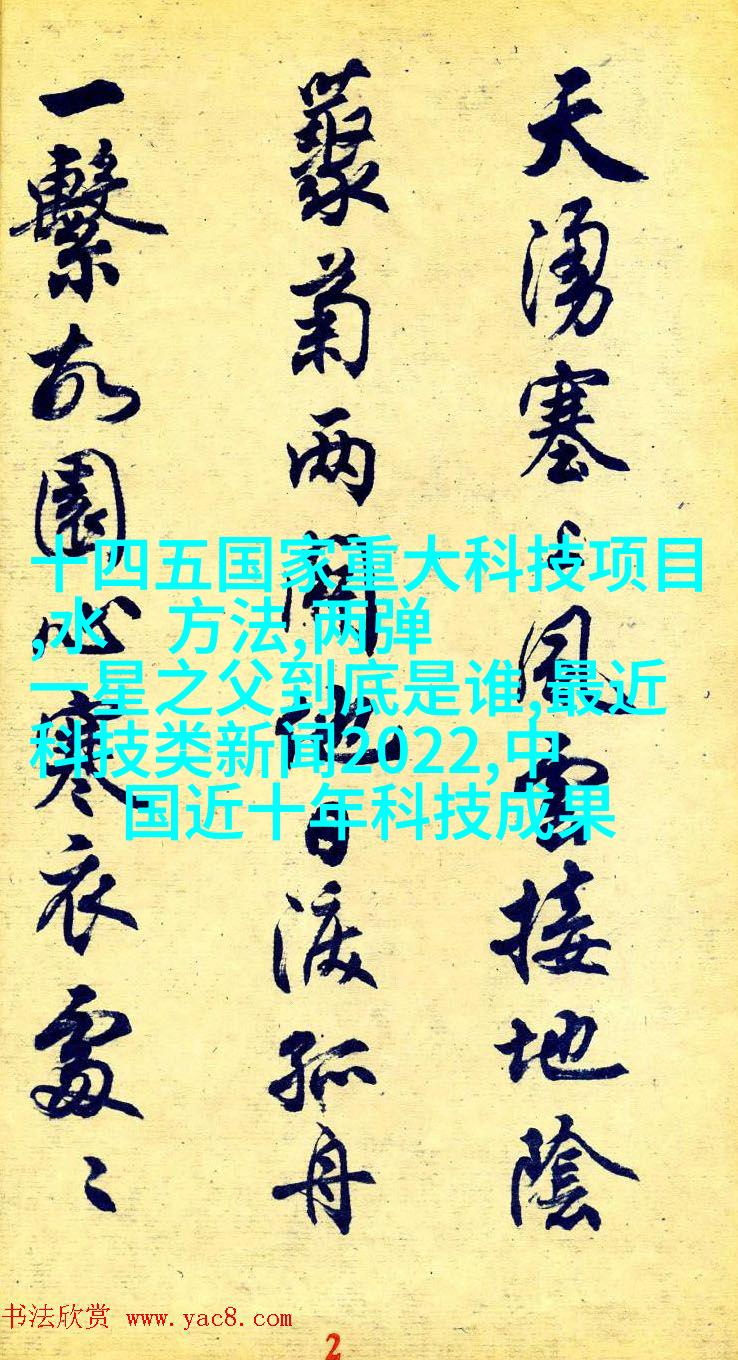 天湧塞上風雲接地陰
叢菊两開他日淚孤舟
一繫故園心寒衣處〻
十四五国家重大科技项目
,水 方法,两弹
一星之父到底是谁,最近
科技类新闻2022,中
国近十年科技成果
书法欣赏 www.yac8.com
2